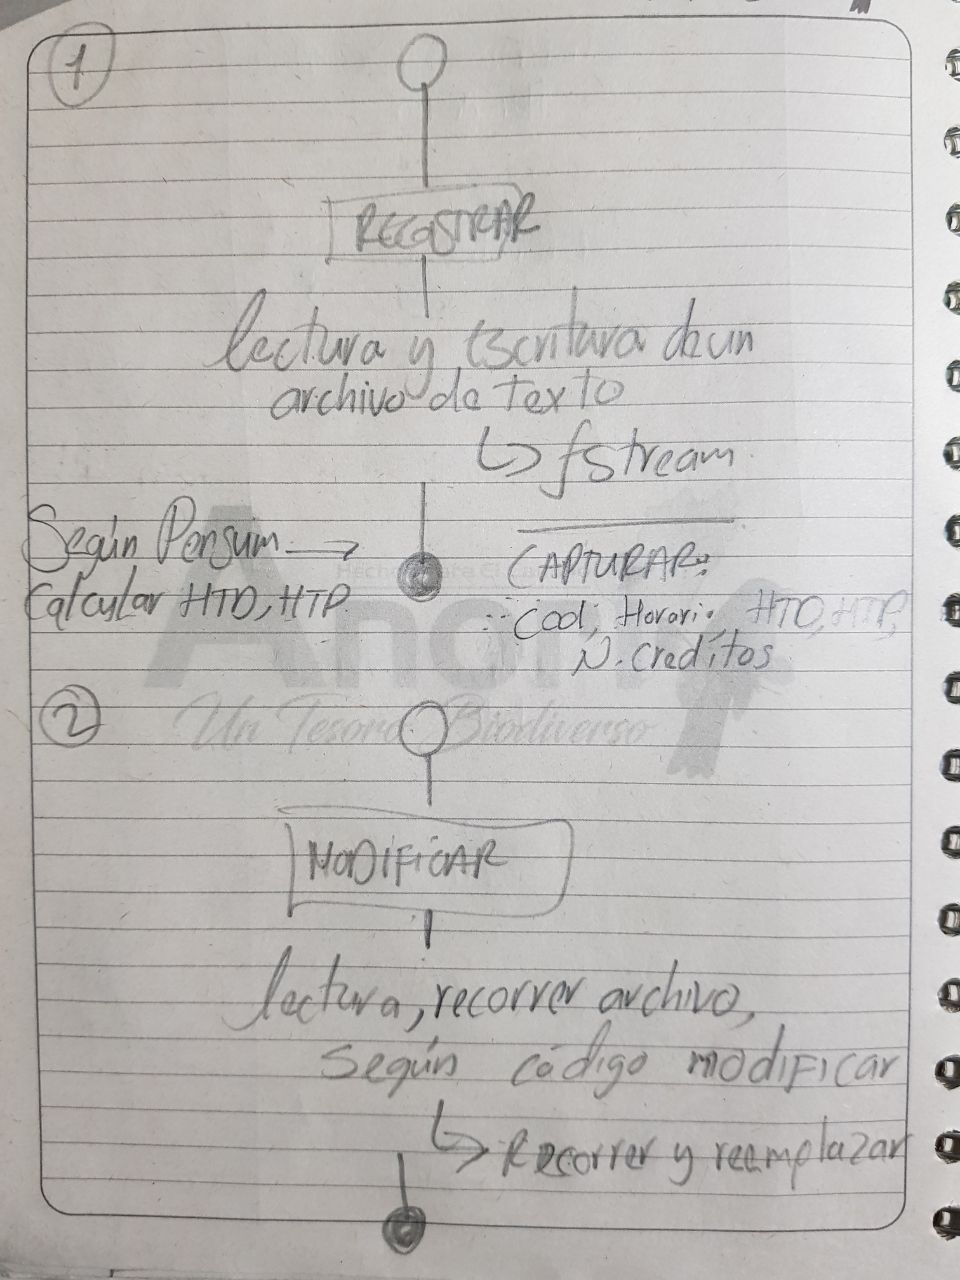 1
REGISTRAR
lectura y Escritura de un
archivo de texto
↳ fstream
Según Pensum →
Calcular HTD, HTP
CAPTURAR:
Cod, Horario HTD, HTP,
N. Creditos
Anorí
Un Tesoro Biodiverso
2
MODIFICAR
lectura, recorrer archivo,
Según código modificar
↳ Recorrer y reemplazar